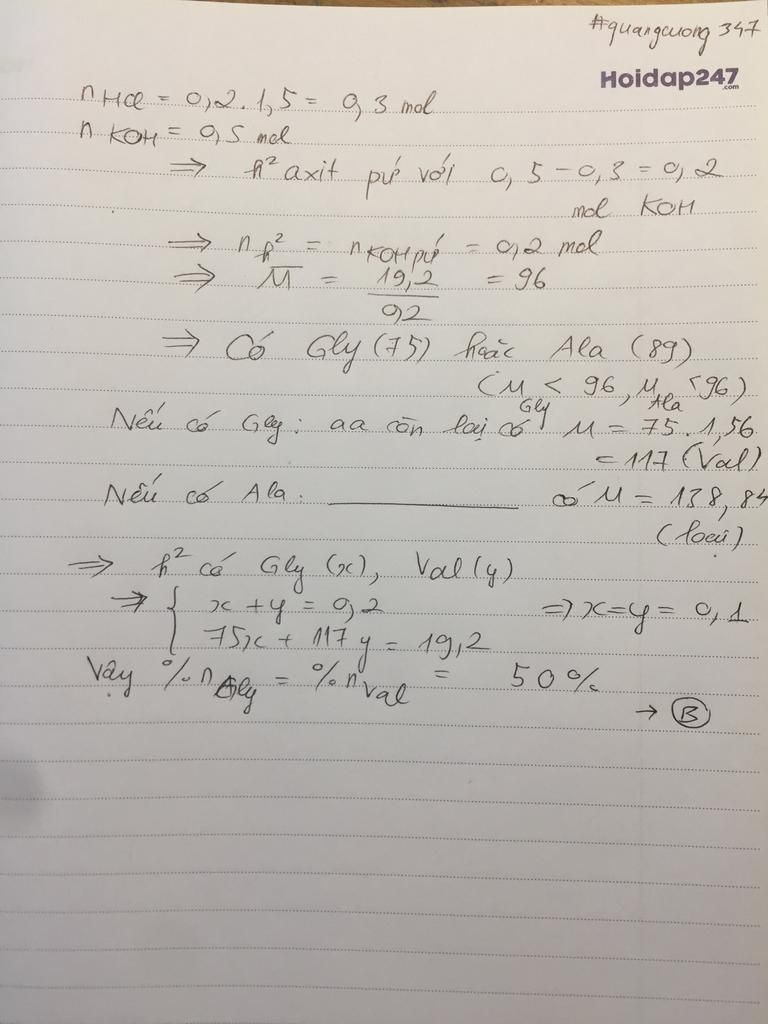 #quangcuong 347
Hoidap247
.com
n HCl = 0,2 . 1,5 = 0,3 mol
n KOH = 0,5 mol
⇒ h² axit pứ với 0,5 - 0,3 = 0,2
mol KOH
⇒ n h² = n KOH pứ = 0,2 mol
⇒ M̅ = 19,2 / 0,2 = 96
⇒ Có Gly (75) hoặc Ala (89)
(M Gly < 96, M Ala < 96)
Nếu có Gly: aa còn lại có M = 75 . 1,56
= 117 (Val)
Nếu có Ala: ________ có M = 138,84
(loại)
⇒ h² có Gly (x), Val (y)
⇒ { x + y = 0,2 ⇒ x = y = 0,1
75x + 117y = 19,2
Vậy % n Gly = % n Val = 50%
→ B